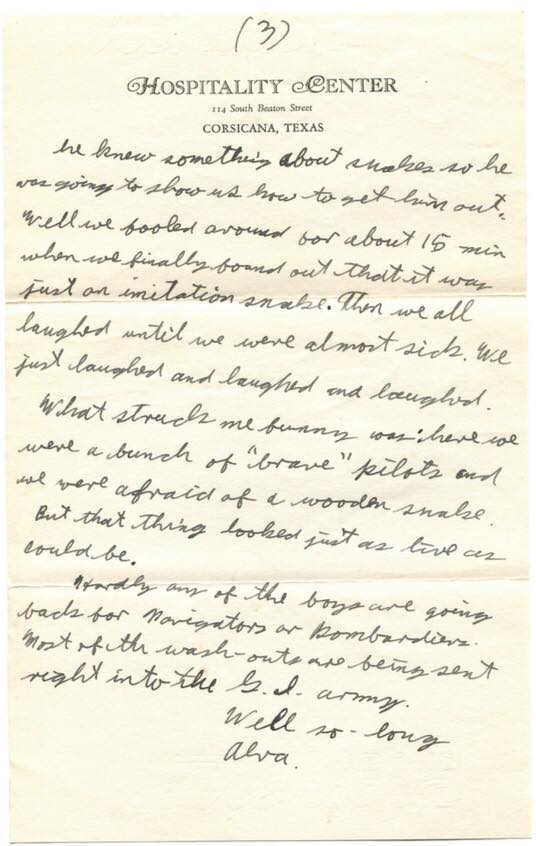 (3)
HOSPITALITY CENTER
114 South Beaton Street
CORSICANA, TEXAS
he knew something about snakes so he
was going to show us how to get him out.
Well we fooled around for about 15 min
when we finally found out that it was
just an imitation snake. Then we all
laughed until we were almost sick. We
just laughed and laughed and laughed.
What struck me funny was: here we
were a bunch of "brave" pilots and
we were afraid of a wooden snake.
But that thing looked just as live as
could be.
Hardly any of the boys are going
back for Navigators or Bombardiers.
Most of th wash-outs are being sent
right into the G.I. army.
Well so-long
Alva.